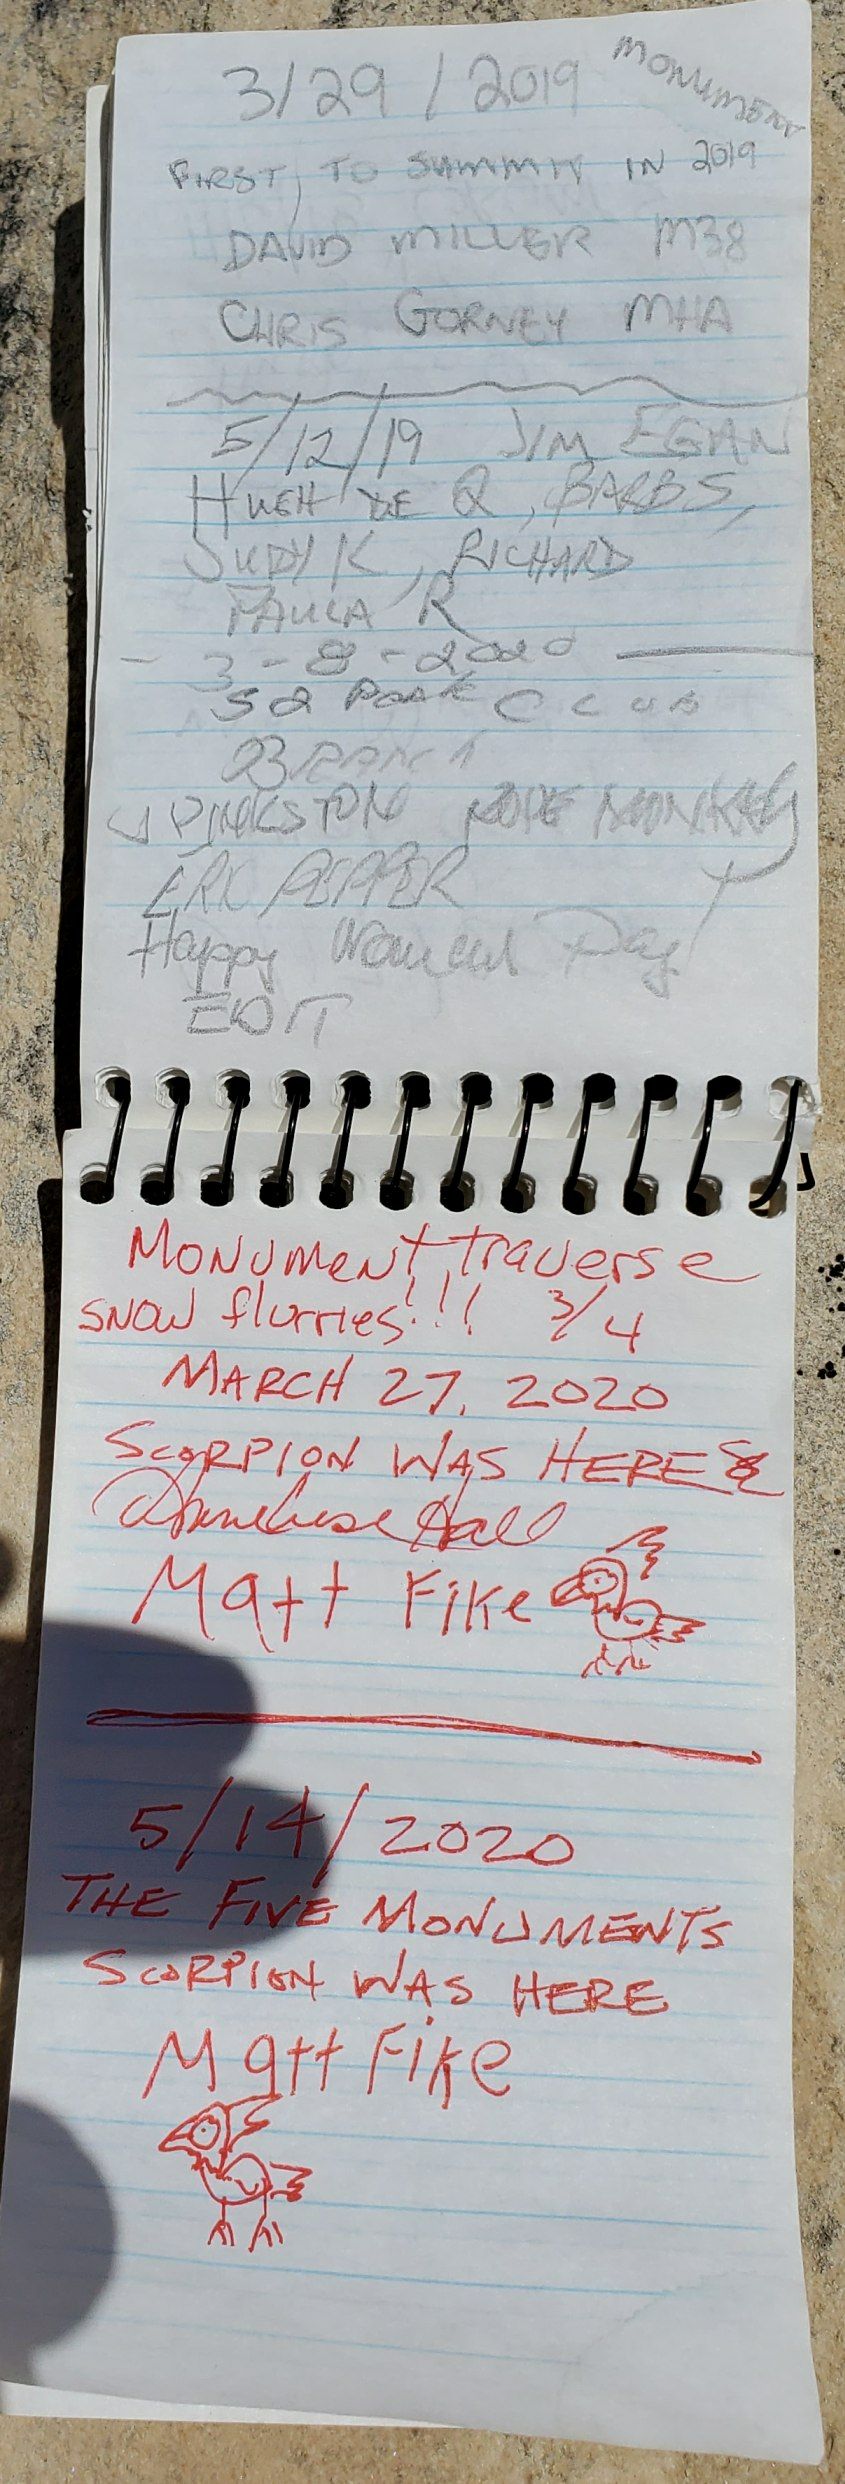 3/29/2019 MONUMENT
FIRST TO SUMMIT IN 2019
DAVID MILLER M38
CHRIS GORNEY MHA
5/12/19 JIM EGAN
HUEH DE Q, BARB S,
JUDY K, RICHARD
PAULA R
- 3-8-2020
52 PEAK CLUB
J PINKSTON ROPE MONKEY
ERIC PEPPER
Happy Women's Day
EDIT
MONUMENT traverse
SNOW flurries!!! 3/4
MARCH 27, 2020
SCORPION WAS HERE &
Hall
Matt Fike
5/14/2020
THE FIVE MONUMENTS
SCORPION WAS HERE
Matt Fike